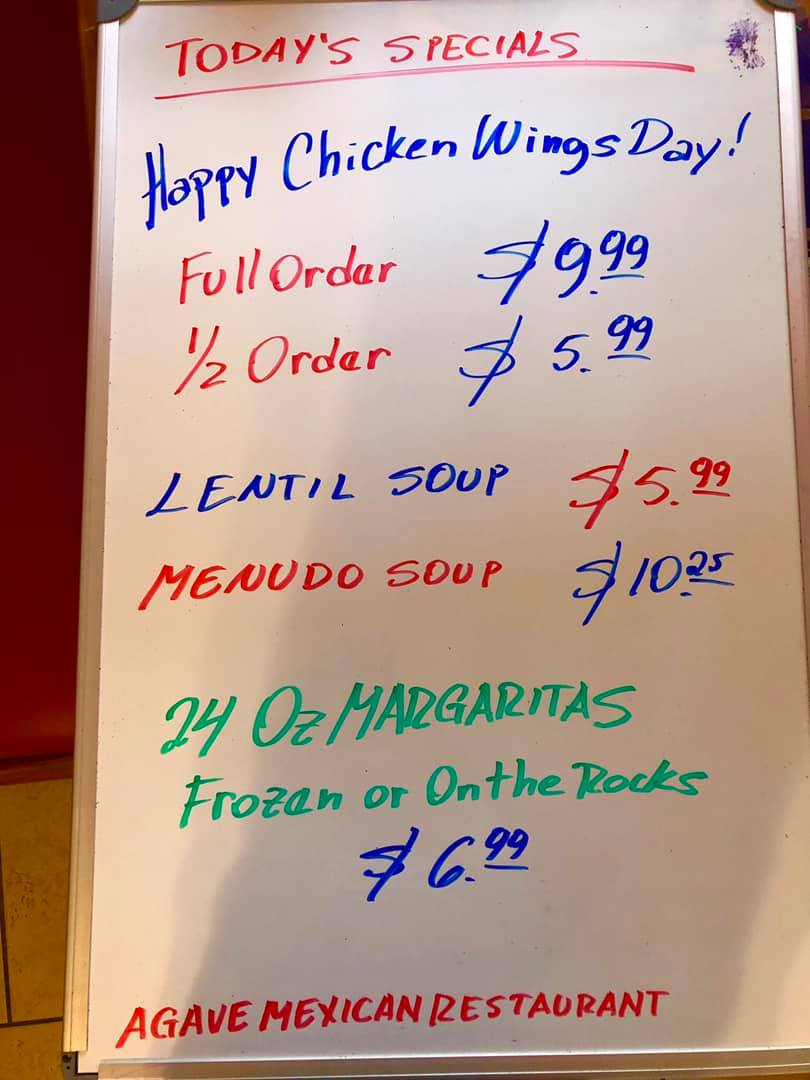 TODAY'S SPECIALS
Happy Chicken Wings Day!
Full Order $9.99
1/2 Order $5.99
LENTIL SOUP $5.99
MENUDO SOUP $10.25
24 Oz MARGARITAS
Frozen or On the Rocks
$6.99
AGAVE MEXICAN RESTAURANT